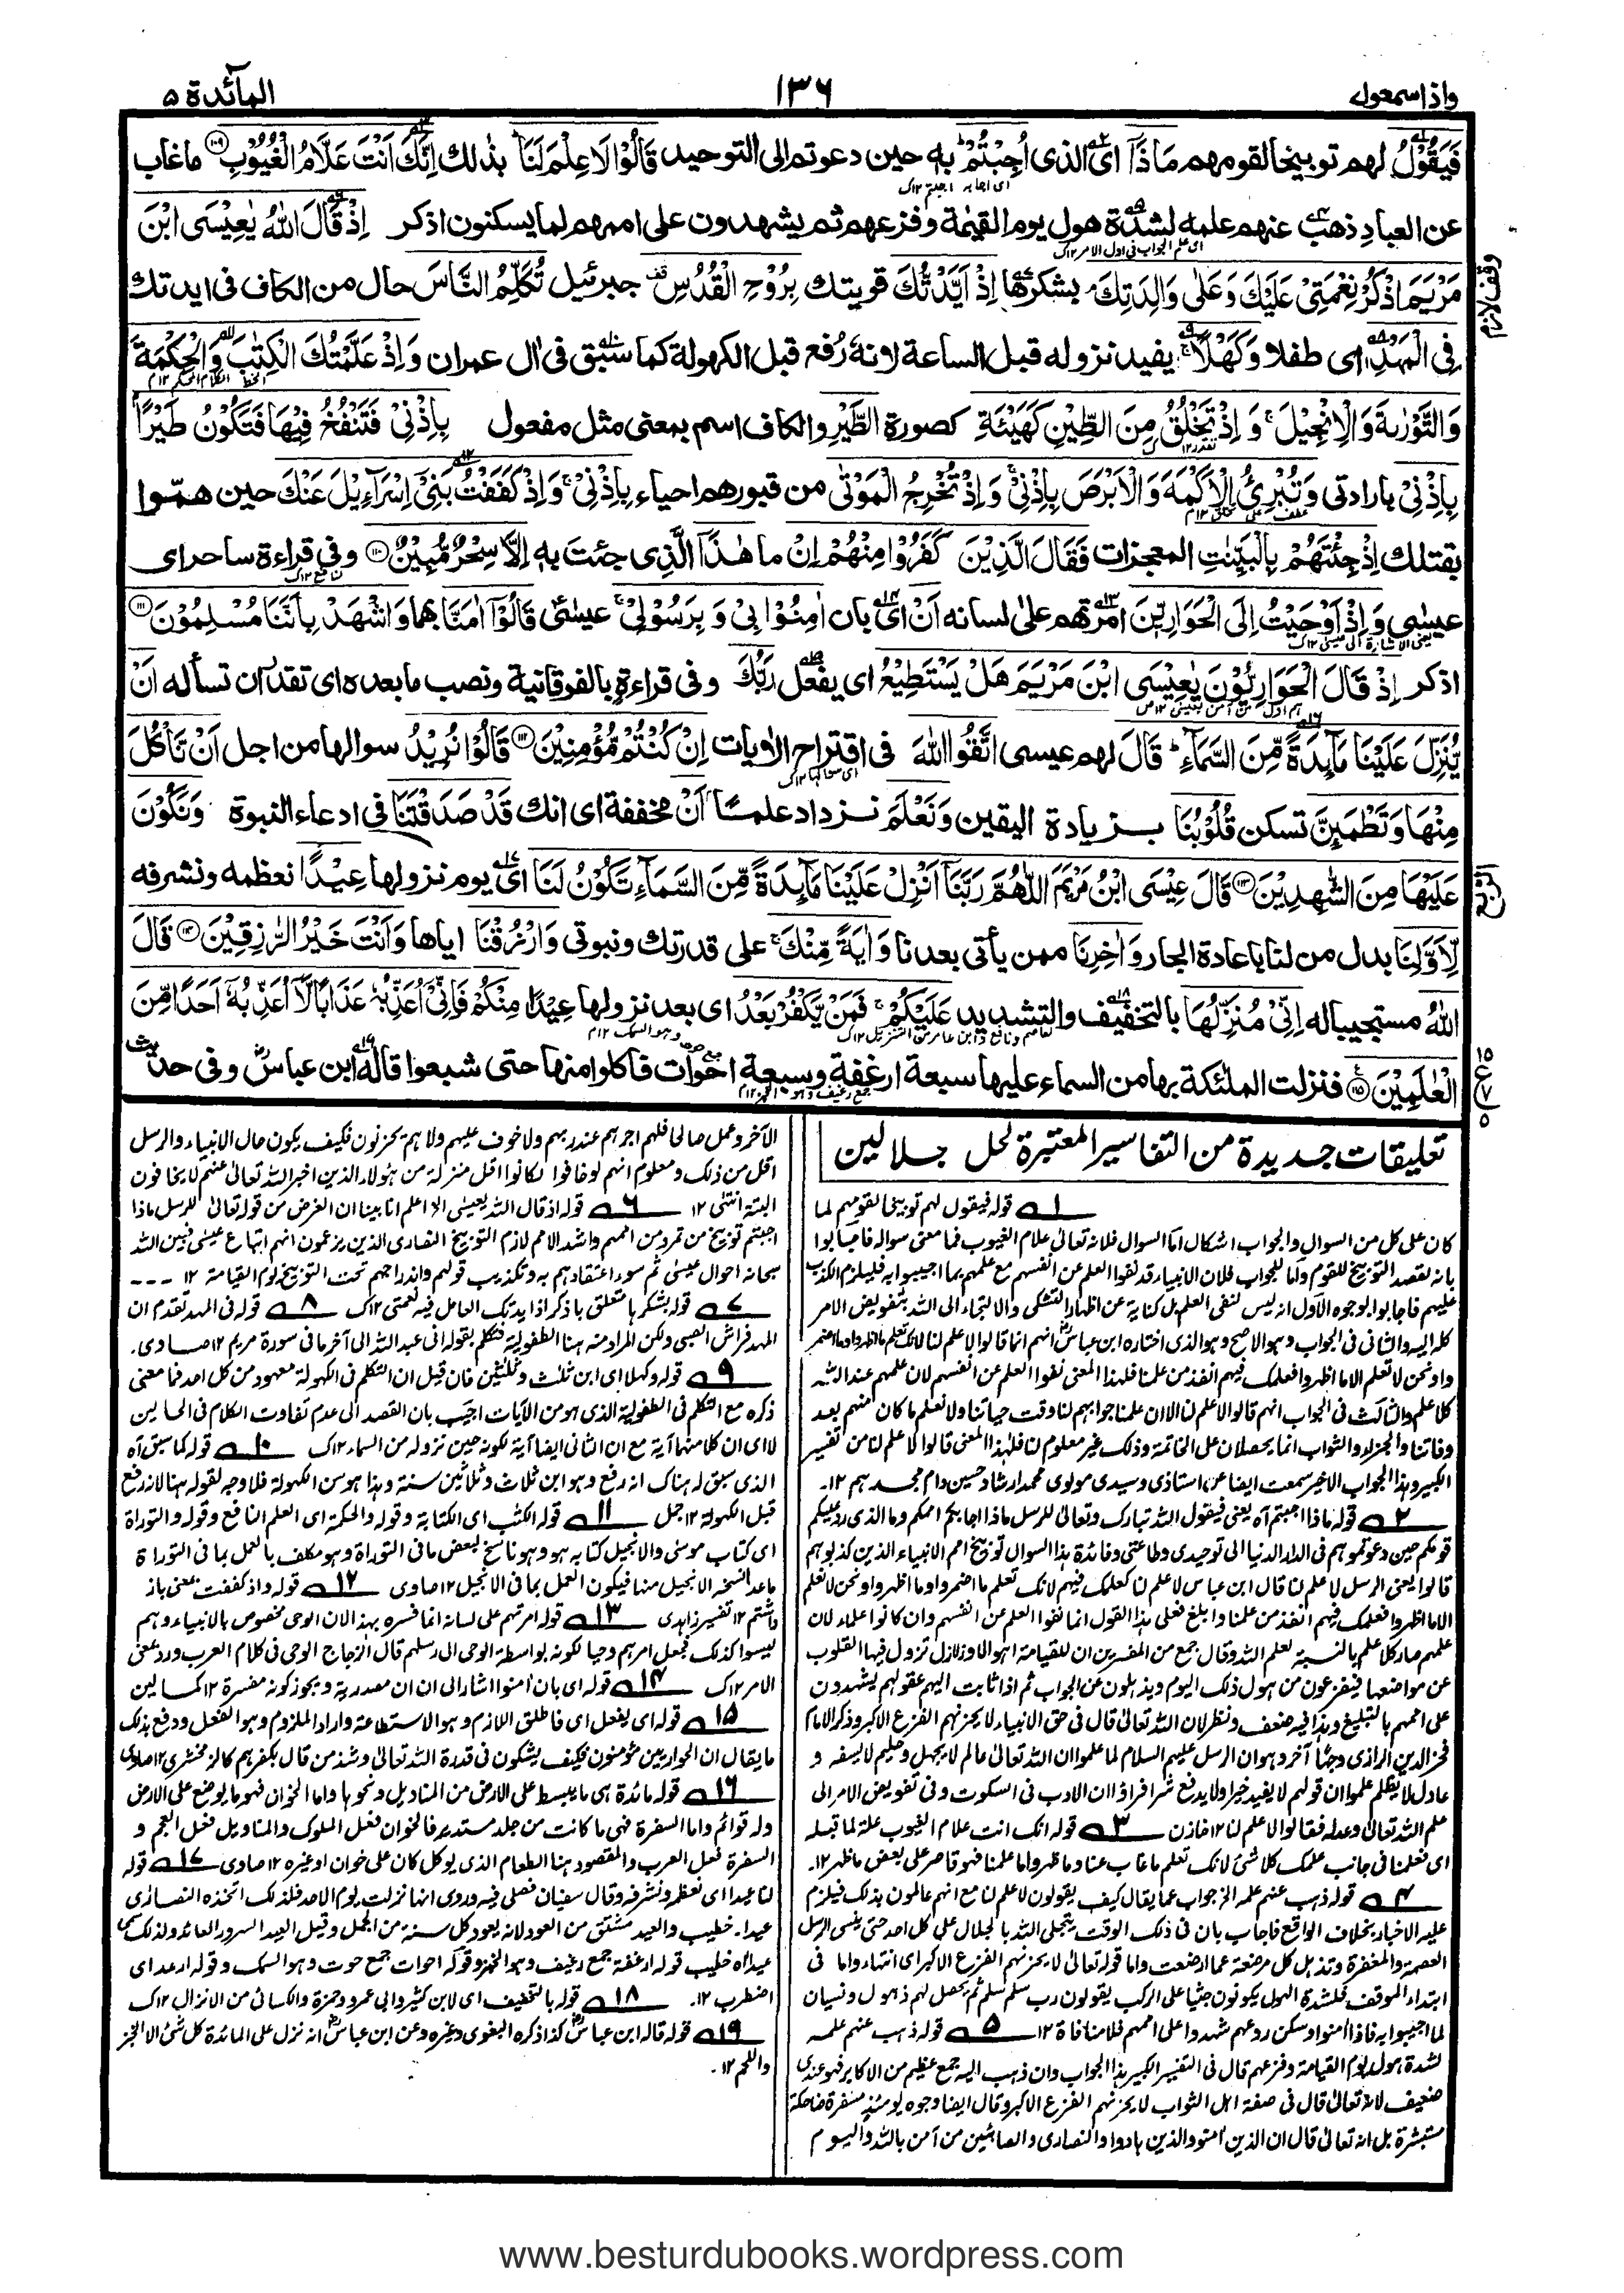 واذاسمعوا
١٣٦
المآئدة ٥
فَيَقُوْلُ لهم توبيخا لقومهم مَاذَآ اى الذى اُجِبْتُمْ به حين دعوتم الى التوحيد قَالُوْا لَا عِلْمَ لَنَا بذلك اِنَّكَ اَنْتَ عَلَّامُ الْغُيُوْبِ ١٠٩ ماغاب
عن العباد ذهب عنهم علمه لشدة هول يوم القيٰمة وفزعهم ثم يشهدون على اممهم لما يسكنون اذكر اِذْ قَالَ اللّٰهُ يٰعِيْسَى ابْنَ
مَرْيَمَ اذْكُرْ نِعْمَتِيْ عَلَيْكَ وَعَلٰى وَالِدَتِكَ بشكرها اِذْ اَيَّدْتُّكَ قويتك بِرُوْحِ الْقُدُسِ جبرئيل تُكَلِّمُ النَّاسَ حال من الكاف فى ايدتك
فِى الْمَهْدِ اى طفلا وَكَهْلًا يفيد نزوله قبل الساعة لانه رُفع قبل الكهولة كما سبق فى اٰل عمران وَاِذْ عَلَّمْتُكَ الْكِتٰبَ وَالْحِكْمَةَ
وَالتَّوْرٰىةَ وَالْاِنْجِيْلَ وَاِذْ تَخْلُقُ مِنَ الطِّيْنِ كَهَيْئَةِ كصورة الطَّيْرِ والكاف اسم بمعنى مثل مفعول بِاِذْنِيْ فَتَنْفُخُ فِيْهَا فَتَكُوْنُ طَيْرًا
بِاِذْنِيْ بارادتى وَتُبْرِئُ الْاَكْمَهَ وَالْاَبْرَصَ بِاِذْنِيْ وَاِذْ تُخْرِجُ الْمَوْتٰى من قبورهم احياء بِاِذْنِيْ وَاِذْ كَفَفْتُ بَنِيْٓ اِسْرَآءِيْلَ عَنْكَ حين همّوا
بقتلك اِذْ جِئْتَهُمْ بِالْبَيِّنٰتِ المعجزات فَقَالَ الَّذِيْنَ كَفَرُوْا مِنْهُمْ اِنْ ما هٰذَآ الَّذى جئت به اِلَّا سِحْرٌ مُّبِيْنٌ ١١٠ وفى قراءة ساحر اى
عيسٰى وَاِذْ اَوْحَيْتُ اِلَى الْحَوَارِيّٖنَ امرتهم علىٰ لسانه اَنْ اى بان اٰمِنُوْا بِيْ وَبِرَسُوْلِيْ عيسٰى قَالُوْٓا اٰمَنَّا بهما وَاشْهَدْ بِاَنَّنَا مُسْلِمُوْنَ ١١١
اذكر اِذْ قَالَ الْحَوَارِيُّوْنَ يٰعِيْسَى ابْنَ مَرْيَمَ هَلْ يَسْتَطِيْعُ اى يفعل رَبُّكَ وفى قراءة بالفوقانية ونصب ما بعده اى تقدر ان تسأله اَنْ
يُّنَزِّلَ عَلَيْنَا مَآئِدَةً مِّنَ السَّمَآءِ قَالَ لهم عيسى اتَّقُوا اللّٰهَ فى اقتراح الاٰيات اِنْ كُنْتُمْ مُّؤْمِنِيْنَ ١١٢ قَالُوْا نُرِيْدُ سوالها من اجل اَنْ نَّأْكُلَ
مِنْهَا وَتَطْمَئِنَّ تسكن قُلُوْبُنَا بزيادة اليقين وَنَعْلَمَ نزداد علما اَنْ مخففة اى انك قَدْ صَدَقْتَنَا فى ادعاء النبوة وَنَكُوْنَ
عَلَيْهَا مِنَ الشّٰهِدِيْنَ ١١٣ قَالَ عِيْسَى ابْنُ مَرْيَمَ اللّٰهُمَّ رَبَّنَآ اَنْزِلْ عَلَيْنَا مَآئِدَةً مِّنَ السَّمَآءِ تَكُوْنُ لَنَا اى يوم نزولها عِيْدًا نعظمه ونشرفه
لِّاَوَّلِنَا بدل من لنا باعادة الجار وَاٰخِرِنَا ممن يأتى بعدنا وَاٰيَةً مِّنْكَ على قدرتك ونبوتى وَارْزُقْنَا اياها وَاَنْتَ خَيْرُ الرّٰزِقِيْنَ ١١٤ قَالَ
اللّٰهُ مستجيبا له اِنِّيْ مُنَزِّلُهَا بالتخفيف والتشديد عَلَيْكُمْ فَمَنْ يَّكْفُرْ بَعْدُ اى بعد نزولها مِنْكُمْ فَاِنِّيْٓ اُعَذِّبُهٗ عَذَابًا لَّآ اُعَذِّبُهٗٓ اَحَدًا مِّنَ
الْعٰلَمِيْنَ ١١٥ فنزلت الملئكة بها من السماء عليها سبعة ارغفة وسبعة احوات فاكلوا منها حتى شبعوا قاله ابن عباس وفى حديث
وقف لازم
الربع
تعليقات جديدة من التفاسير المعتبرة لحل جلالين
١ قوله فيقول لهم توبيخا لقومهم لما
كان على كل من السوال والجواب اشكال اما السوال فلانه تعالى علام الغيوب فما معنى سواله فاجابوا
بانه لقصد التوبيخ للقوم واما للجواب فلان الانبياء قد نفوا العلم عن انفسهم مع علمهم بما اجيبوا به فيلزم الكذب
عليهم فاجابوا بوجوه الاول انه ليس لنفى العلم بل كناية عن اظهار التشكى والالتجاء الى الله بتفويض الامر
كله اليه والثانى فى الجواب وهو الاصح وهو الذى اختاره ابن عباس انهم انما قالوا لا علم لنا لانك تعلم ما اظهروا وما اضمروا
ونحن لا نعلم الا ما اظهروا فعلمك فيهم انفذ من علمنا فلهذا المعنى نفوا العلم عن انفسهم لان علمهم عند الله
كلا علم والثالث فى الجواب انهم قالوا لا علم لنا الا ان علمنا جوابهم لنا وقت حياتنا ولا نعلم ما كان منهم بعد
وفاتنا والجزاء والثواب انما يحصلان على الخاتمة وذلك غير معلوم لنا فلهذا المعنى قالوا لا علم لنا من تفسير
الكبير وهذا الجواب الاخير سمعت ايضا عن استاذى وسيدى مولوى محمد ارشاد حسين دام مجدهم ١٢۔
٢ قوله ماذا اجبتم آه يعنى فيقول الله تبارك وتعالى للرسل ماذا اجابكم اممكم وما الذى رد عليكم
قومكم حين دعوتموهم فى الدار الدنيا الى توحيدى وطاعتى وفائدة هذا السوال توبيخ امم الانبياء الذين كذبوهم
قالوا يعنى الرسل لا علم لنا قال ابن عباس لا علم لنا كعلمك فيهم لانك تعلم ما اضمروا وما اظهروا ونحن لا نعلم
الا ما اظهروا فعلمك فيهم انفذ من علمنا وابلغ فعلى هذا القول انما نفوا العلم عن انفسهم وان كانوا علماء لان
علمهم صار كلا علم بالنسبة لعلم الله وقال جمع من المفسرين ان للقيامة اهوالا وزلازل تزول فيها القلوب
عن مواضعها فيفزعون من هول ذلك اليوم ويذهلون عن الجواب ثم اذا ثابت اليهم عقولهم يشهدون
على اممهم بالتبليغ وهذا فيه ضعف ونظر لان الله تعالى قال فى حق الانبياء لا يحزنهم الفزع الاكبر وذكر الامام
فخر الدين الرازى وجها آخر وهو ان الرسل عليهم السلام لما علموا ان الله تعالى عالم لا يجهل وحليم لا يسفه و
عادل لا يظلم علموا ان قولهم لا يفيد خيرا ولا يدفع شرا فراؤا ان الادب فى السكوت وفى تفويض الامر الى
علم الله تعالى وعدله فقالوا لا علم لنا ١٢ خازن ٣ قوله انك انت علام الغيوب علة لما قبله
اى فعلمنا فى جانب علمك كلا شئ لانك تعلم ما غاب عنا وما ظهر واما علمنا فهو قاصر على بعض ما ظهر ١٢۔
٤ قوله ذهب عنهم علمه الخ جواب عما يقال كيف يقولون لا علم لنا مع انهم عالمون بذلك فيلزم
عليه الاخبار بخلاف الواقع فاجاب بان فى ذلك الوقت يتجلى الله بالجلال على كل احد حتى ينسى الرسل
العصمة والمغفرة وتذهل كل مرضعة عما ارضعت واما قوله تعالى لا يحزنهم الفزع الاكبر اى انتهاء واما فى
ابتداء الموقف فلشدة الهول يكونون جثيا على الركب يقولون رب سلم سلم ثم يحصل لهم ذهول ونسيان
لما اجيبوا به فاذا امنوا وسكن روعهم شهدوا على اممهم فلا منافاة ١٢ ٥ قوله ذهب عنهم علمه
لشدة هول يوم القيامة وفزعهم قال فى التفسير الكبير هذا الجواب وان ذهب اليه جمع عظيم من الاكابر فهو عندى
ضعيف لانه تعالى قال فى صفة اهل الثواب لا يحزنهم الفزع الاكبر وقال ايضا وجوه يومئذ مسفرة ضاحكة
مستبشرة بل انه تعالى قال ان الذين آمنوا والذين هادوا والنصارى والصابئين من آمن بالله واليوم
الآخر وعمل صالحا فلهم اجرهم عند ربهم ولا خوف عليهم ولا هم يحزنون فكيف يكون حال الانبياء والرسل
اقل من ذلك ومعلوم انهم لو خافوا لكانوا اقل منزلة من هؤلاء الذين اخبر الله تعالى عنهم لا يخافون
البتة انتهى ١٢ ٦ قوله اذ قال الله يعيسى الا اعلم انا بينا ان الغرض من قوله تعالى للرسل ماذا
اجبتم توبيخ من تمرد من اممهم واشد الامم لازم التوبيخ النصارى الذين يزعمون انهم اتباع عيسى فبين الله
سبحانه احوال عيسى ثم سوء اعتقادهم به وتكذيب قولهم واندراجهم تحت التوبيخ يوم القيامة ١٢ ---
٧ قوله بشكرها متعلق باذكر اذ ايدتك العامل فيه نعمتى ١٢ك ٨ قوله فى المهد تقدم ان
المهد فراش الصبى ولكن المراد منه هنا الطفولية فتكلم بقوله انى عبد الله الى آخر ما فى سورة مريم ١٢ صاوى۔
٩ قوله وكهلا اى ابن ثلث وثلثين فان قيل ان التكلم فى الكهولة معهود من كل احد فما معنى
ذكره مع التكلم فى الطفولية الذى هو من الآيات اجيب بان القصد الى عدم تفاوت الكلام فى الحالين
لا اى ان كلا منها آية مع ان الثانى ايضا آية لكونه حين نزوله من السماء ١٢ك ١٠ قوله كما سبق آه
الذى سبق له هناك انه رفع وهو ابن ثلاث وثلاثين سنة وهذا هو سن الكهولة فلا وجه لقوله هنا لانه رفع
قبل الكهولة ١٢ جمل ١١ قوله الكتٰب اى الكتابة وقوله والحكمة اى العلم النافع وقوله والتوراة
اى كتاب موسى والانجيل كتابه هو وهو ناسخ لبعض ما فى التوراة وهو مكلف بالعمل بما فى التوراة
ما عدا نسخه الانجيل منها فيكون العمل بما فى الانجيل ١٢ صاوى ١٢ قوله واذ كففت بمعنى باز
داشتم ١٢ تفسير زاهدى ١٣ قوله امرتهم على لسانه انما فسره بهذا لان الوحى مخصوص بالانبياء وهم
ليسوا كذلك فجعل امرهم وحيا لكونه بواسطة الوحى الى رسلهم قال الزجاج الوحى فى كلام العرب ورد بمعنى
الامر ١٢ك ١٤ قوله اى بان آمنوا اشار الى ان ان مصدرية ويجوز كونه مفسرة ١٢ كمالين
١٥ قوله اى يفعل اى فاطلق اللازم وهو الاستطاعة واراد الملزوم وهو الفعل ودفع بذلك
ما يقال ان الحواريين مؤمنون فكيف يشكون فى قدرة الله تعالى وشذ من قال بكفرهم كالزمخشرى ١٢ صاوى
١٦ قوله مائدة هى ما يبسط على الارض من المناديل ونحوها واما الخوان فهو ما يوضع على الارض
وله قوائم واما السفرة فهى ما كانت من جلد مستدير فالخوان فعل الملوك والمناديل فعل العجم و
السفرة فعل العرب والمقصود هنا الطعام الذى يوكل كان على خوان او غيره ١٢ صاوى ١٧ قوله
لنا عيدا اى نعظمه ونشرفه وقال سفيان فصلى فيه وروى انها نزلت يوم الاحد فلذلك اتخذه النصارى
عيدا۔ خطيب والعيد مشتق من العود لانه يعود كل سنة من الجمل وقيل العيد السرور العائد ولذلك سمى
عيدا آه خطيب قوله ارغفة جمع رغيف وهو الخبز وقوله احوات جمع حوت وهو السمك وقوله ارعد اى
اضطرب ١٢۔ ١٨ قوله بالتخفيف اى لابن كثير وابى عمرو وحمزة والكسائى من الانزال ١٢ك
١٩ قوله قاله ابن عباس كذا ذكره البغوى وغيره وعن ابن عباس انه نزل على المائدة كل شئ الا الخبز
واللحم ١٢۔
www.besturdubooks.wordpress.com